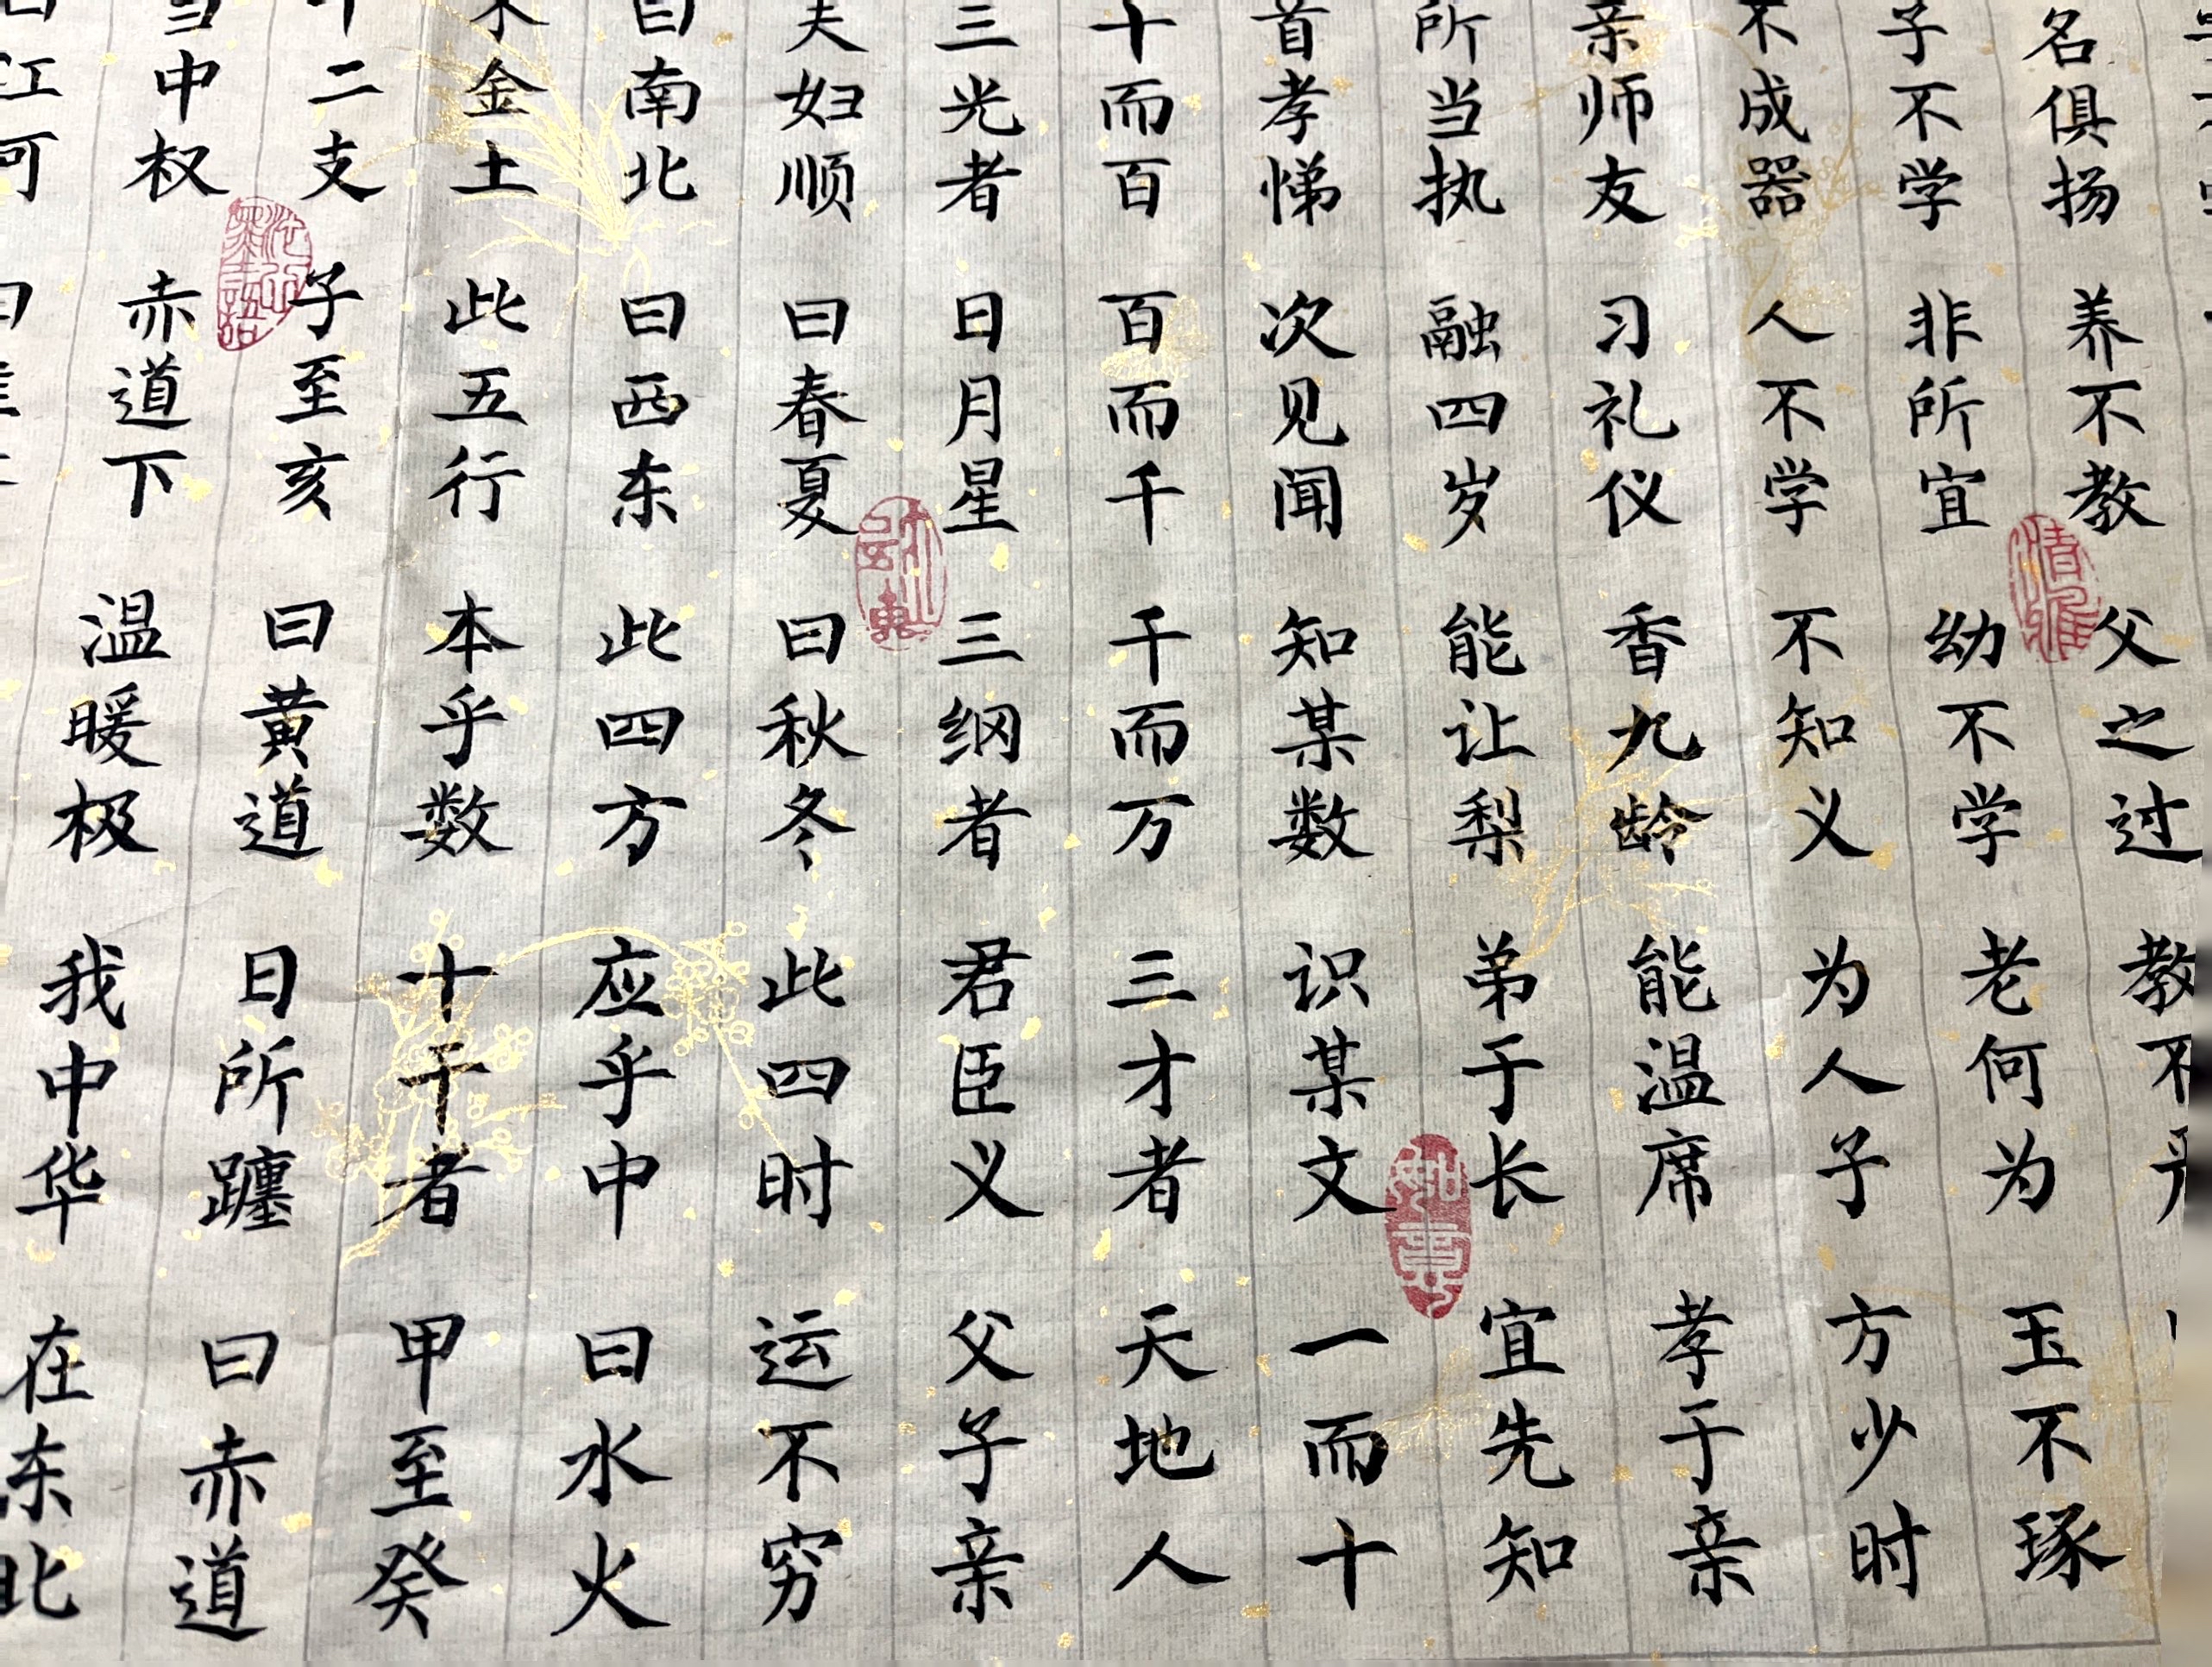 名俱扬 养不教 父之过 教不
子不学 非所宜 幼不学 老何为 玉不琢
不成器 人不学 不知义 为人子 方少时
亲师友 习礼仪 香九龄 能温席 孝于亲
所当执 融四岁 能让梨 弟于长 宜先知
首孝悌 次见闻 知某数 识某文 一而十
十而百 百而千 千而万 三才者 天地人
三光者 日月星 三纲者 君臣义 父子亲
夫妇顺 曰春夏 曰秋冬 此四时 运不穷
曰南北 曰西东 此四方 应乎中 曰水火
木金土 此五行 本乎数 十干者 甲至癸
十二支 子至亥 曰黄道 日所躔 曰赤道
当中权 赤道下 温暖极 我中华 在东北
曰江河 曰